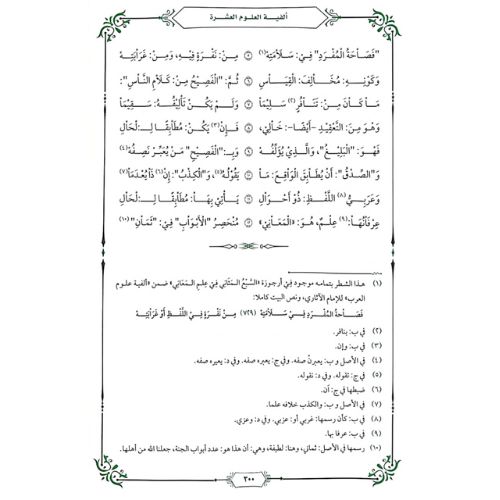 ألفية العلوم العشرة
"فَصَاحَةُ الْمُفْرَدِ" فِي: سَلَامَتِهْ (١) ۞ مِنْ: نَفْرَةٍ فِيهِ، وَمِنْ: غَرَابَتِهْ
وَكَوْنِهِ: مُخَالِفَ: الْقِيَاسِ ۞ ثُمَّ: "الْفَصِيحُ مِنْ: كَلَامِ النَّاسِ":
مَا كَانَ مِنْ: تَنَافُرٍ (٢) سَلِيمَا ۞ وَلَمْ يَكُنْ تَأْلِيفُهُ: سَقِيمَا
وَهْوَ مِنَ: التَّعْقِيدِ -أَيْضًا-: خَالِي، ۞ فَإِنْ (٣) يَكُنْ: مُطَابِقًا لِـ: لْحَالِ
فَهْوَ: "الْبَلِيغُ"، وَالَّذِي يُؤَلِّفُهْ ۞ وَبِـ: "الْفَصِيحِ" مَنْ يُعَبِّرْ نَصِفُهْ (٤)
وَ"الصِّدْقُ": أَنْ يُطَابِقَ الْوَاقِعَ: مَا ۞ يَقُولُهُ (٥)، وَ"الْكِذْبُ": إِنْ (٦) ذَا يُعْدَمَا (٧)
وَعَرَبِيُّ (٨) اللَّفْظِ: ذُو أَحْوَالِ ۞ يَأْتِي بِهَا: مُطَابِقًا لِـ: لْحَالِ
عِرْفَانُهَا: (٩) عِلْمٌ، هُوَ: «الْمَعَانِي» ۞ مُنْحَصِرُ "الْأَبْوَابِ" فِي: "ثَمَانِ" (١٠)
(١) هذا الشطر بتمامه موجود في أرجوزة «السَّبْعُ المَثَانِي فِي عِلمِ المَعَانِي» ضمن «ألفية علوم
العرب» للإمام الآثاري، ونص البيت كاملا:
فَصَاحَةُ الْمُفْرَدِ فِي سَلَامَتِهْ (٧٢٩) مِنْ نَفْرَةٍ فِي اللَّفْظِ أَوْ غَرَابَتِهْ
(٢) في ب: ينافر.
(٣) في ب: وإن.
(٤) في الأصل و ب: يعبرنْ صفه. وفي ج: يعبره صفه. وفي د: يعبريره صفه.
(٥) في ج: تقوله. وفي د: نقوله.
(٦) ضبطها في ج: أن.
(٧) في الأصل و ب: والكذب خلافه علما.
(٨) في ب: كأن رسمها: غربي أو: عزبي. وفي د: وعزي.
(٩) في ب: عرفا بها.
(١٠) رسمها في الأصل: ثماني، وهنا: لطيفة، وهي: أن هذا هو: عدد أبواب الجنة، جعلنا الله من أهلها.
٣٠٠